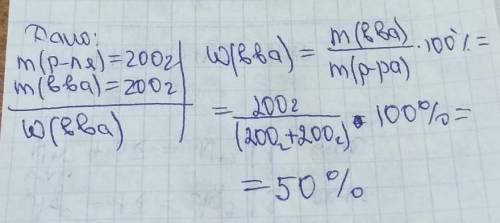 Дано:
m(р-ня)=200г
m(вва)=200г
ω(вва)
ω(вва) = m(вва) / m(р-ра) · 100% =
= 200г / (200г+200г) · 100% =
= 50%